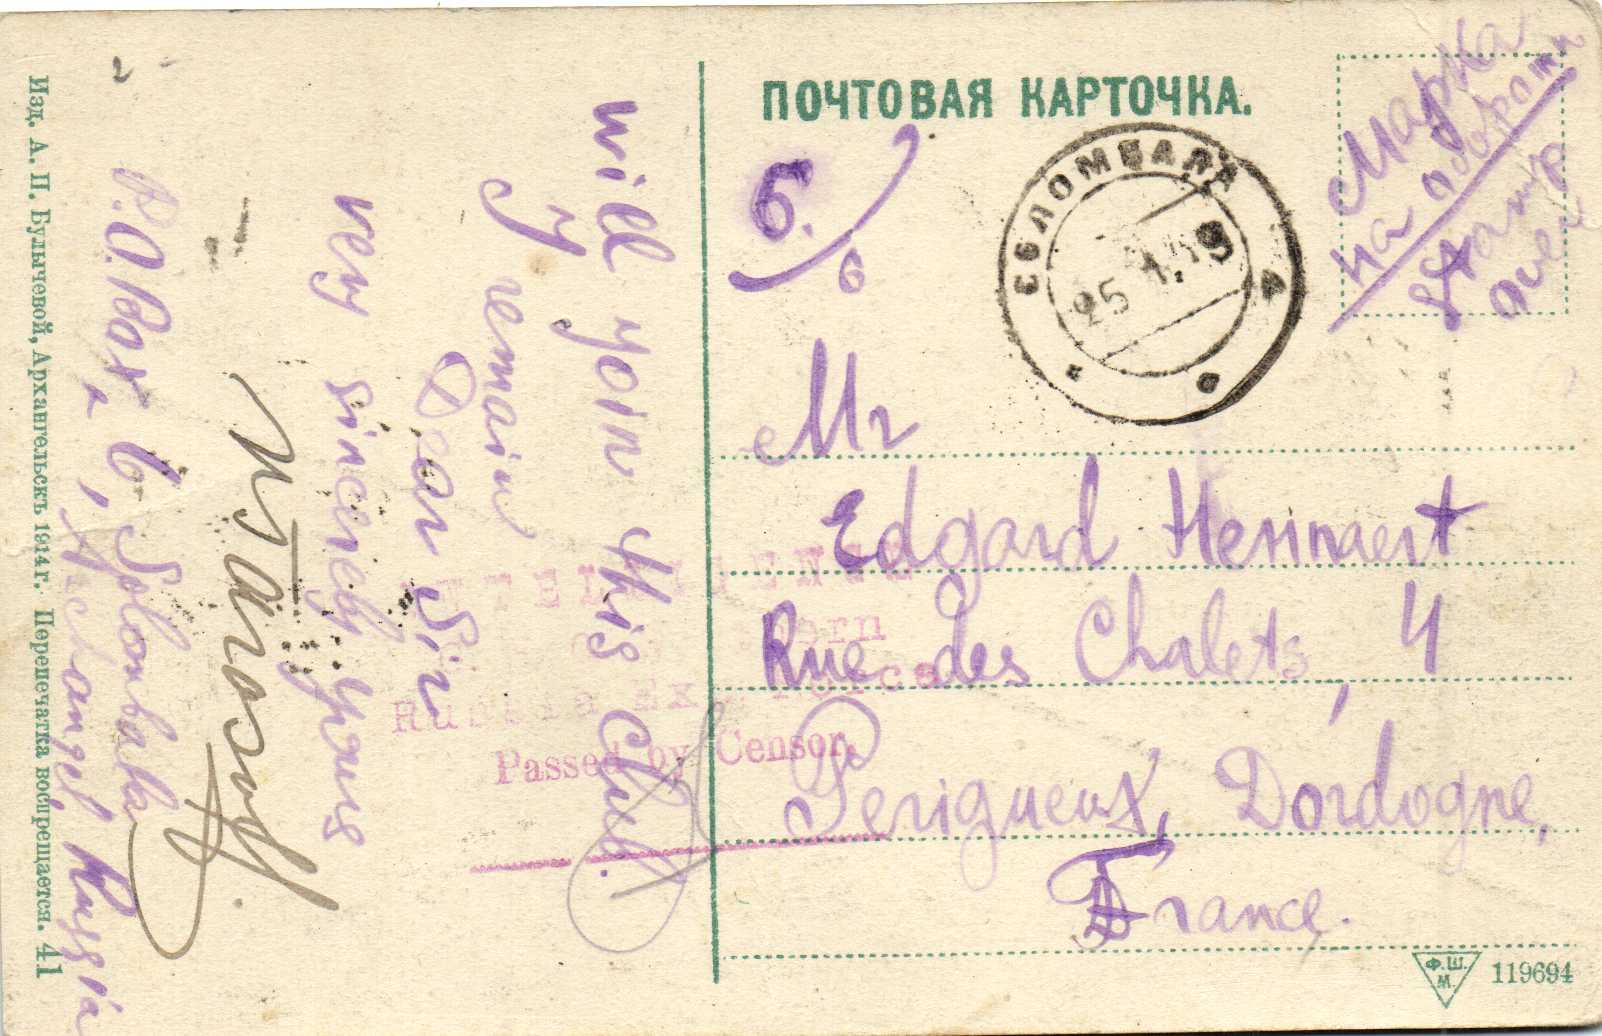 ПОЧТОВАЯ КАРТОЧКА.
Марка
на обороти
Stamp
over
5.
6
СОЛОМБАЛА
25.1.19
Mr
Edgard Hennaert
Rue des Chalets, 4
Perigueux, Dordogne,
France.
Ф.Ш.
М.
119694
INTELLIGENCE
Russia Ex. Force
Passed by Censor.
will yoin this Club.
y remain
Dear Sir
very sincerely yours
P.O. Box 6, Solombala
Archangel Russia
Изд. А. П. Булычевой, Архангельскъ 1914 г. Перепечатка воспрещается. 41